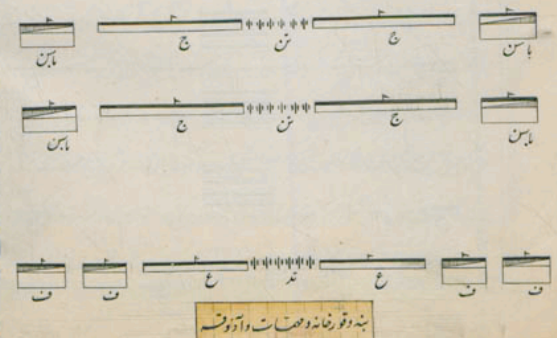 باسن ج تن ج باسن
باسن ج تن ج باسن
ف ف ع تد ع ف ف
بنه و قورخانه و مهمات و آذوقه